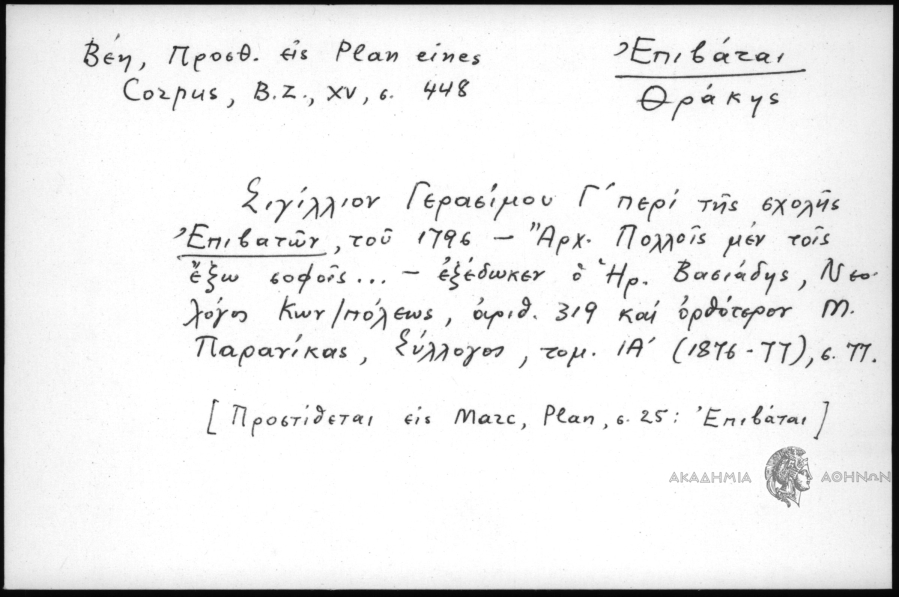 Βέη, Προσθ. εἰς Plan eines
Corpus, B.Z., XV, σ. 448
Ἐπιβάται
Θράκης
Σιγίλλιον Γερασίμου Γ΄ περί τῆς σχολῆς
Ἐπιβατῶν, τοῦ 1796 – "Ἀρχ. Πολλοῖς μέν τοῖς
ἔξω σοφοῖς... – ἐξέδωκεν ὁ Ἡρ. Βασιάδης, Νεο-
λόγος Κων/πόλεως, ἀριθ. 319 καί ὀρθότερον Μ.
Παρανίκας, Σύλλογος, τομ. ΙΑ΄ (1876-77), σ. 77.
[Προστίθεται εἰς Marc, Plan, σ. 25: Ἐπιβάται]
ΑΚΑΔΗΜΙΑ ΑΘΗΝΩΝ